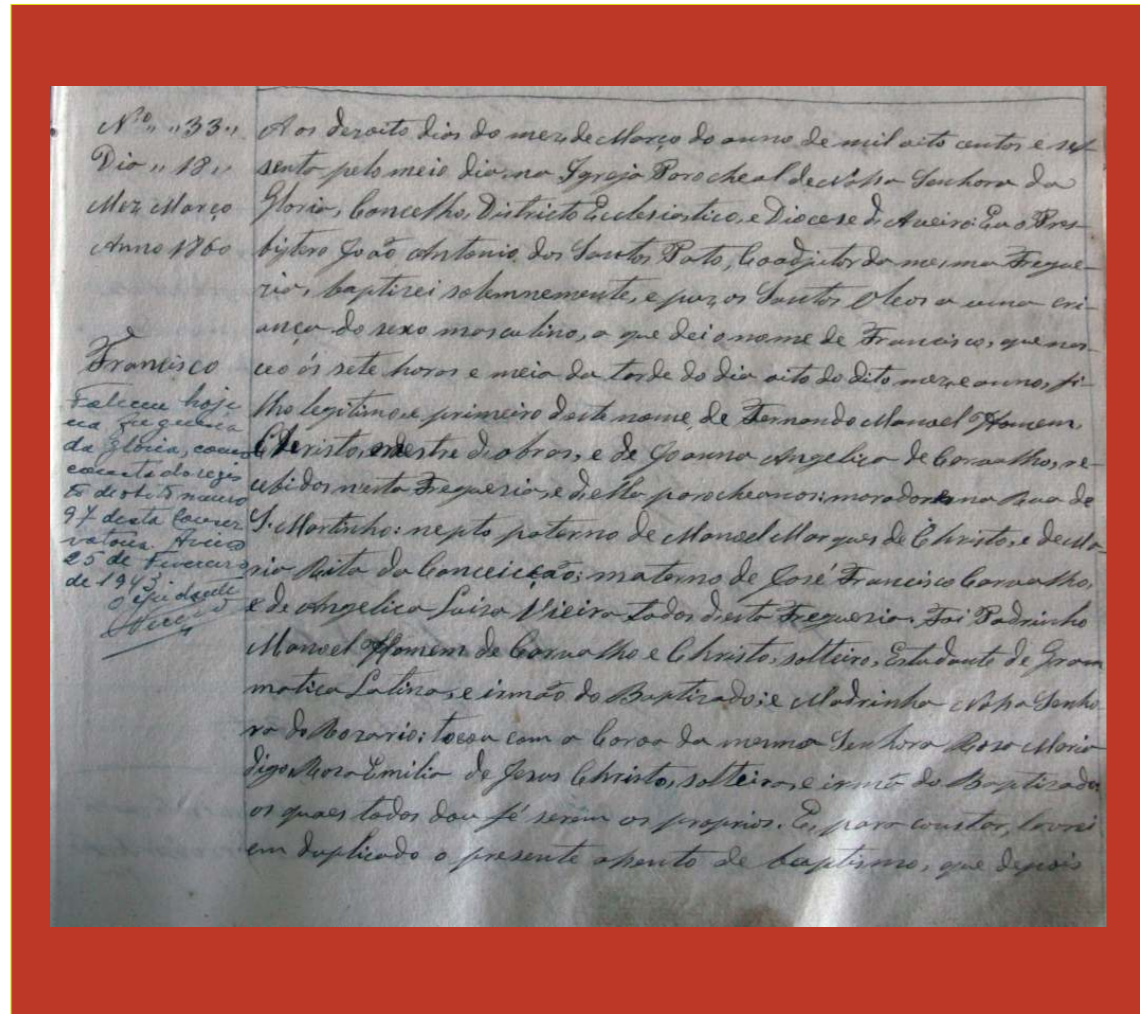 Nº "33"
Dia "18"
Mez Março
Anno 1860
Francisco
Faleceu hoje
na freguesia
da Glória, como
consta do regis
to de obito numero
97 desta Conser
vatoria. Aveiro
25 de Fevereiro
de 1943
Aos dezoito dias do mez de Março do anno de mil oito centos e ses
senta pelo meio dia, na Igreja Parocheal de Nossa Senhora da
Gloria, Concelho, Districto Ecclesiastico, e Diocese de Aveiro: Eu o Pres-
bytero João Antonio dos Santos Pato, Coadjutor da mesma Fregue-
zia, baptizei solemnemente, e puz os Santos Oleos a uma cri-
ança do sexo masculino, a que dei o nome de Francisco, que nas-
ceo ás sete horas e meia da tarde do dia oito do dito mez, e anno, fi-
lho legitimo, e primeiro deste nome, de Fernando Manoel Homem,
Christo, mestre d'obras, e de Joanna Angelica de Carvalho, re-
cebidos nesta Freguezia, e d'ella parocheanos: moradores na Rua de
S. Martinho: nepto paterno de Manoel Marques de Christo, e de Ma-
ria Rita da Conceicção; materno de José Francisco Carvalho,
e de Angelica Luisa Vieira todos d'esta Freguezia. Foi Padrinho
Manoel Homem de Carvalho e Christo, solteiro, Estudante de Gram
matica Latina, e irmão do Baptizado; e Madrinha Nossa Senho
ra do Rozario: tocou com a Coroa da mesma Senhora Roza Maria
digo, Roza Emilia de Jesus Christo, solteira, e irmã do Baptizado,
os quaes todos dou fé serem os proprios. E, para constar, lavrei
em duplicado o presente assento de baptismo, que depois